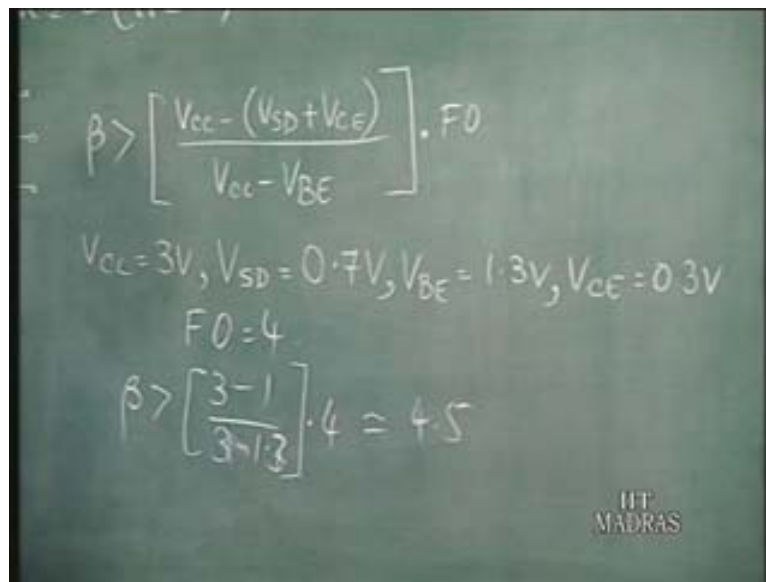 β > [ (V_CC - (V_SD + V_CE)) / (V_CC - V_BE) ] . FO
V_CC = 3V, V_SD = 0.7V, V_BE = 1.3V, V_CE = 0.3V
FO = 4
β > [ (3 - 1) / (3 - 1.3) ] . 4 ≃ 4.5
IIT
MADRAS